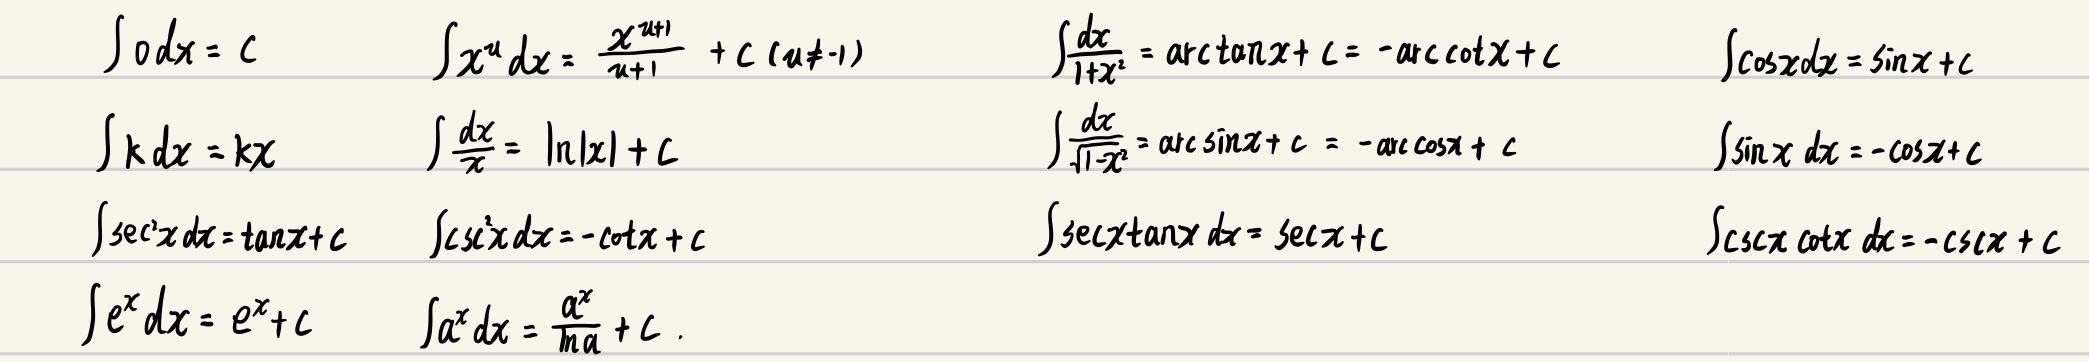 ∫0dx = C ∫x^u dx = x^(u+1)/(u+1) + C (u≠-1) ∫dx/(1+x²) = arctanx + C = -arccotx + C ∫cosxdx = sinx + C
∫k dx = kx ∫dx/x = ln|x| + C ∫dx/√(1-x²) = arcsinx + C = -arccosx + C ∫sinx dx = -cosx + C
∫sec²x dx = tanx + C ∫csc²x dx = -cotx + C ∫secxtanx dx = secx + C ∫cscx cotx dx = -cscx + C
∫e^x dx = e^x + C ∫a^x dx = a^x/lna + C .